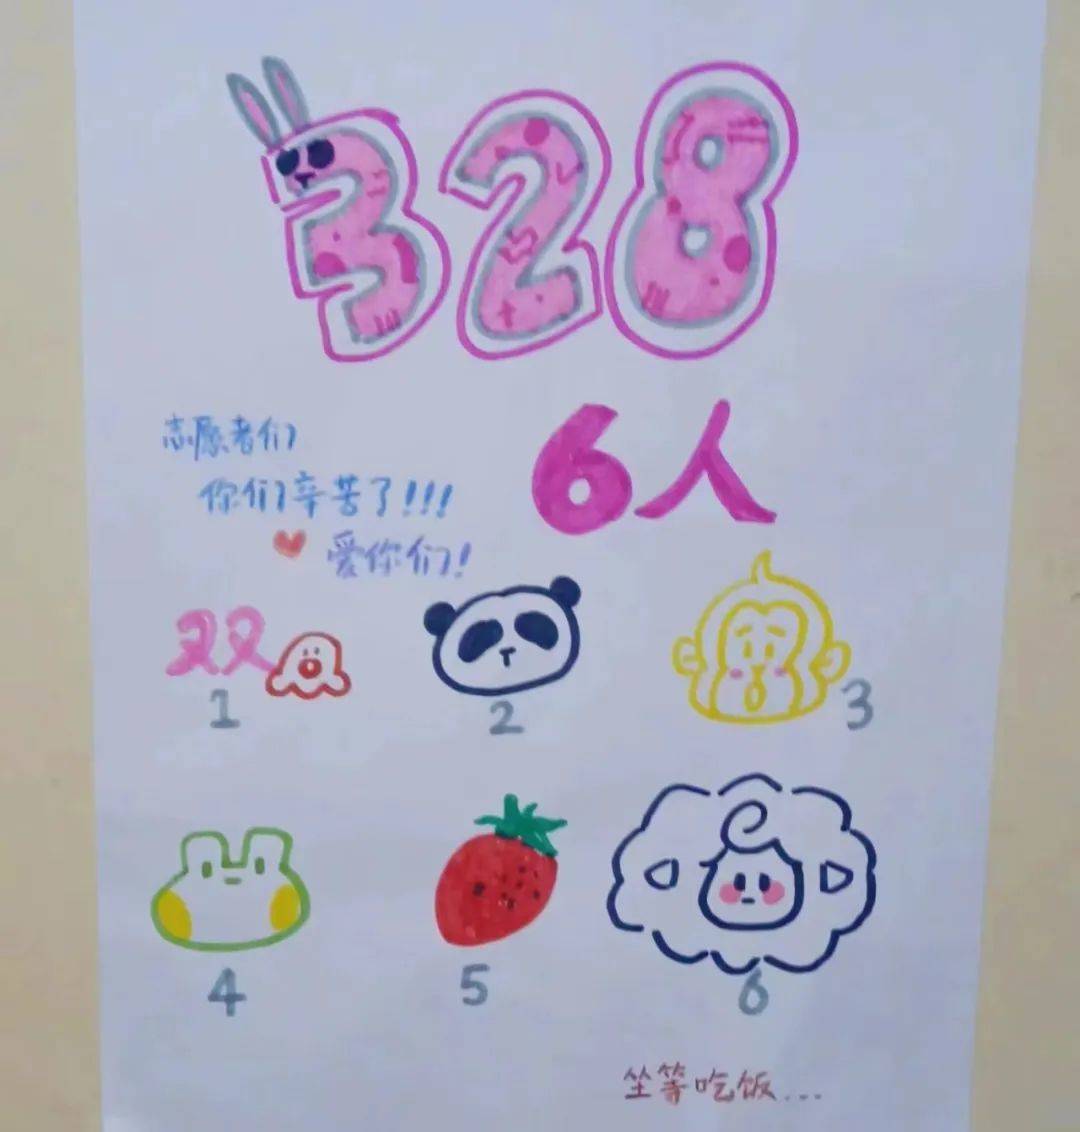 328
6人
志愿者们
你们辛苦了!!!
爱你们!
双
1
2
3
4
5
6
坐等吃饭...